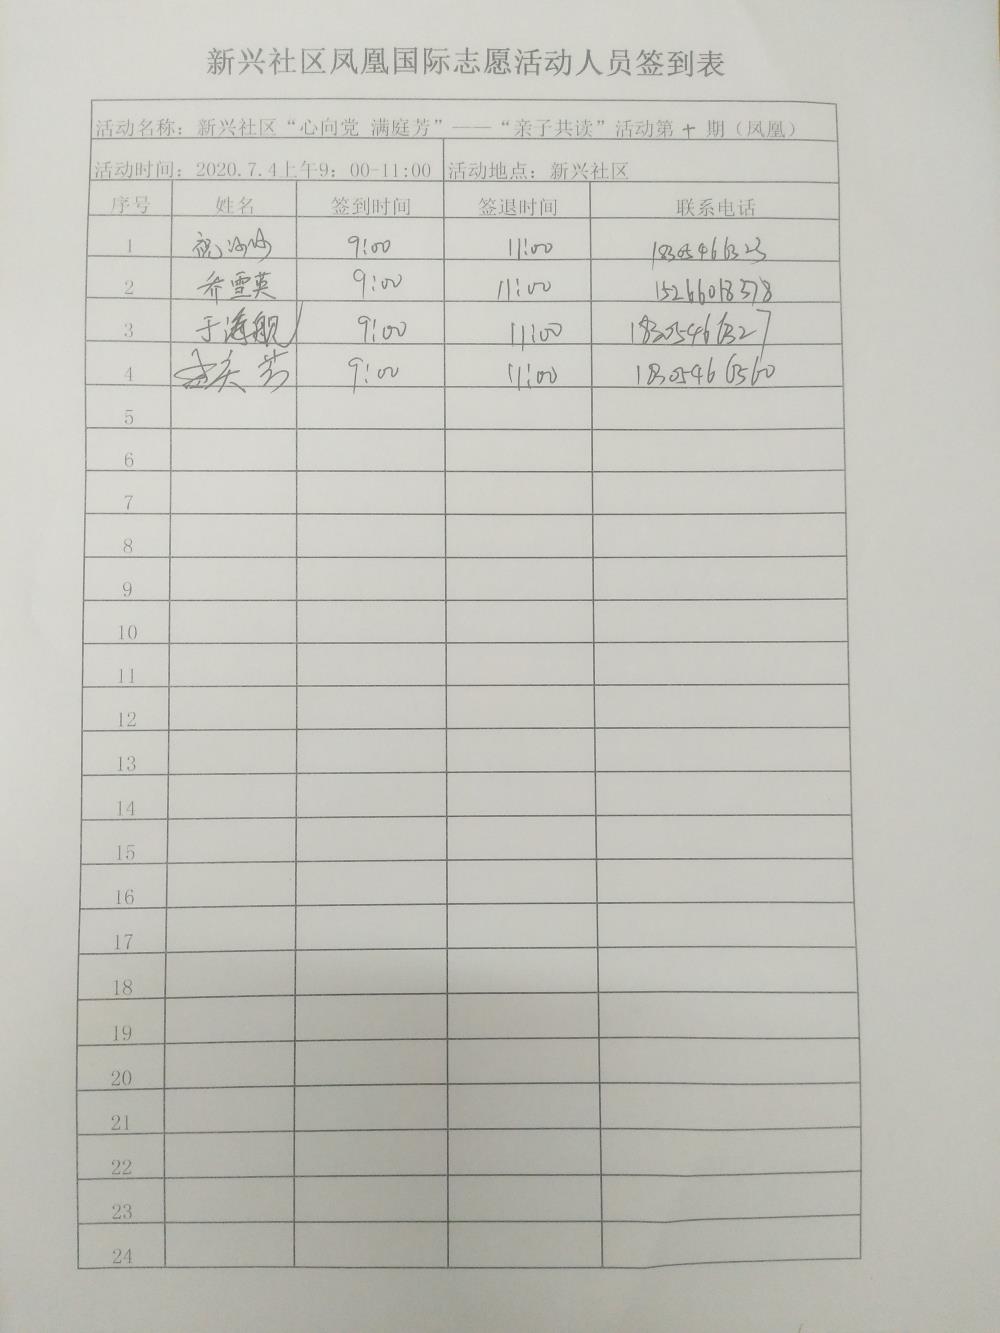 新兴社区凤凰国际志愿活动人员签到表
活动名称：新兴社区“心向党 满庭芳”——“亲子共读”活动第十期（凤凰）
活动时间：2020.7.4上午9：00-11:00 活动地点：新兴社区
序号 姓名 签到时间 签退时间 联系电话
1 祝沙沙 9:00 11:00 18305466323
2 乔雪英 9:00 11:00 15266068378
3 于海舰 9:00 11:00 18305466327
4 9:00 11:00 18305466560
5
6
7
8
9
10
11
12
13
14
15
16
17
18
19
20
21
22
23
24